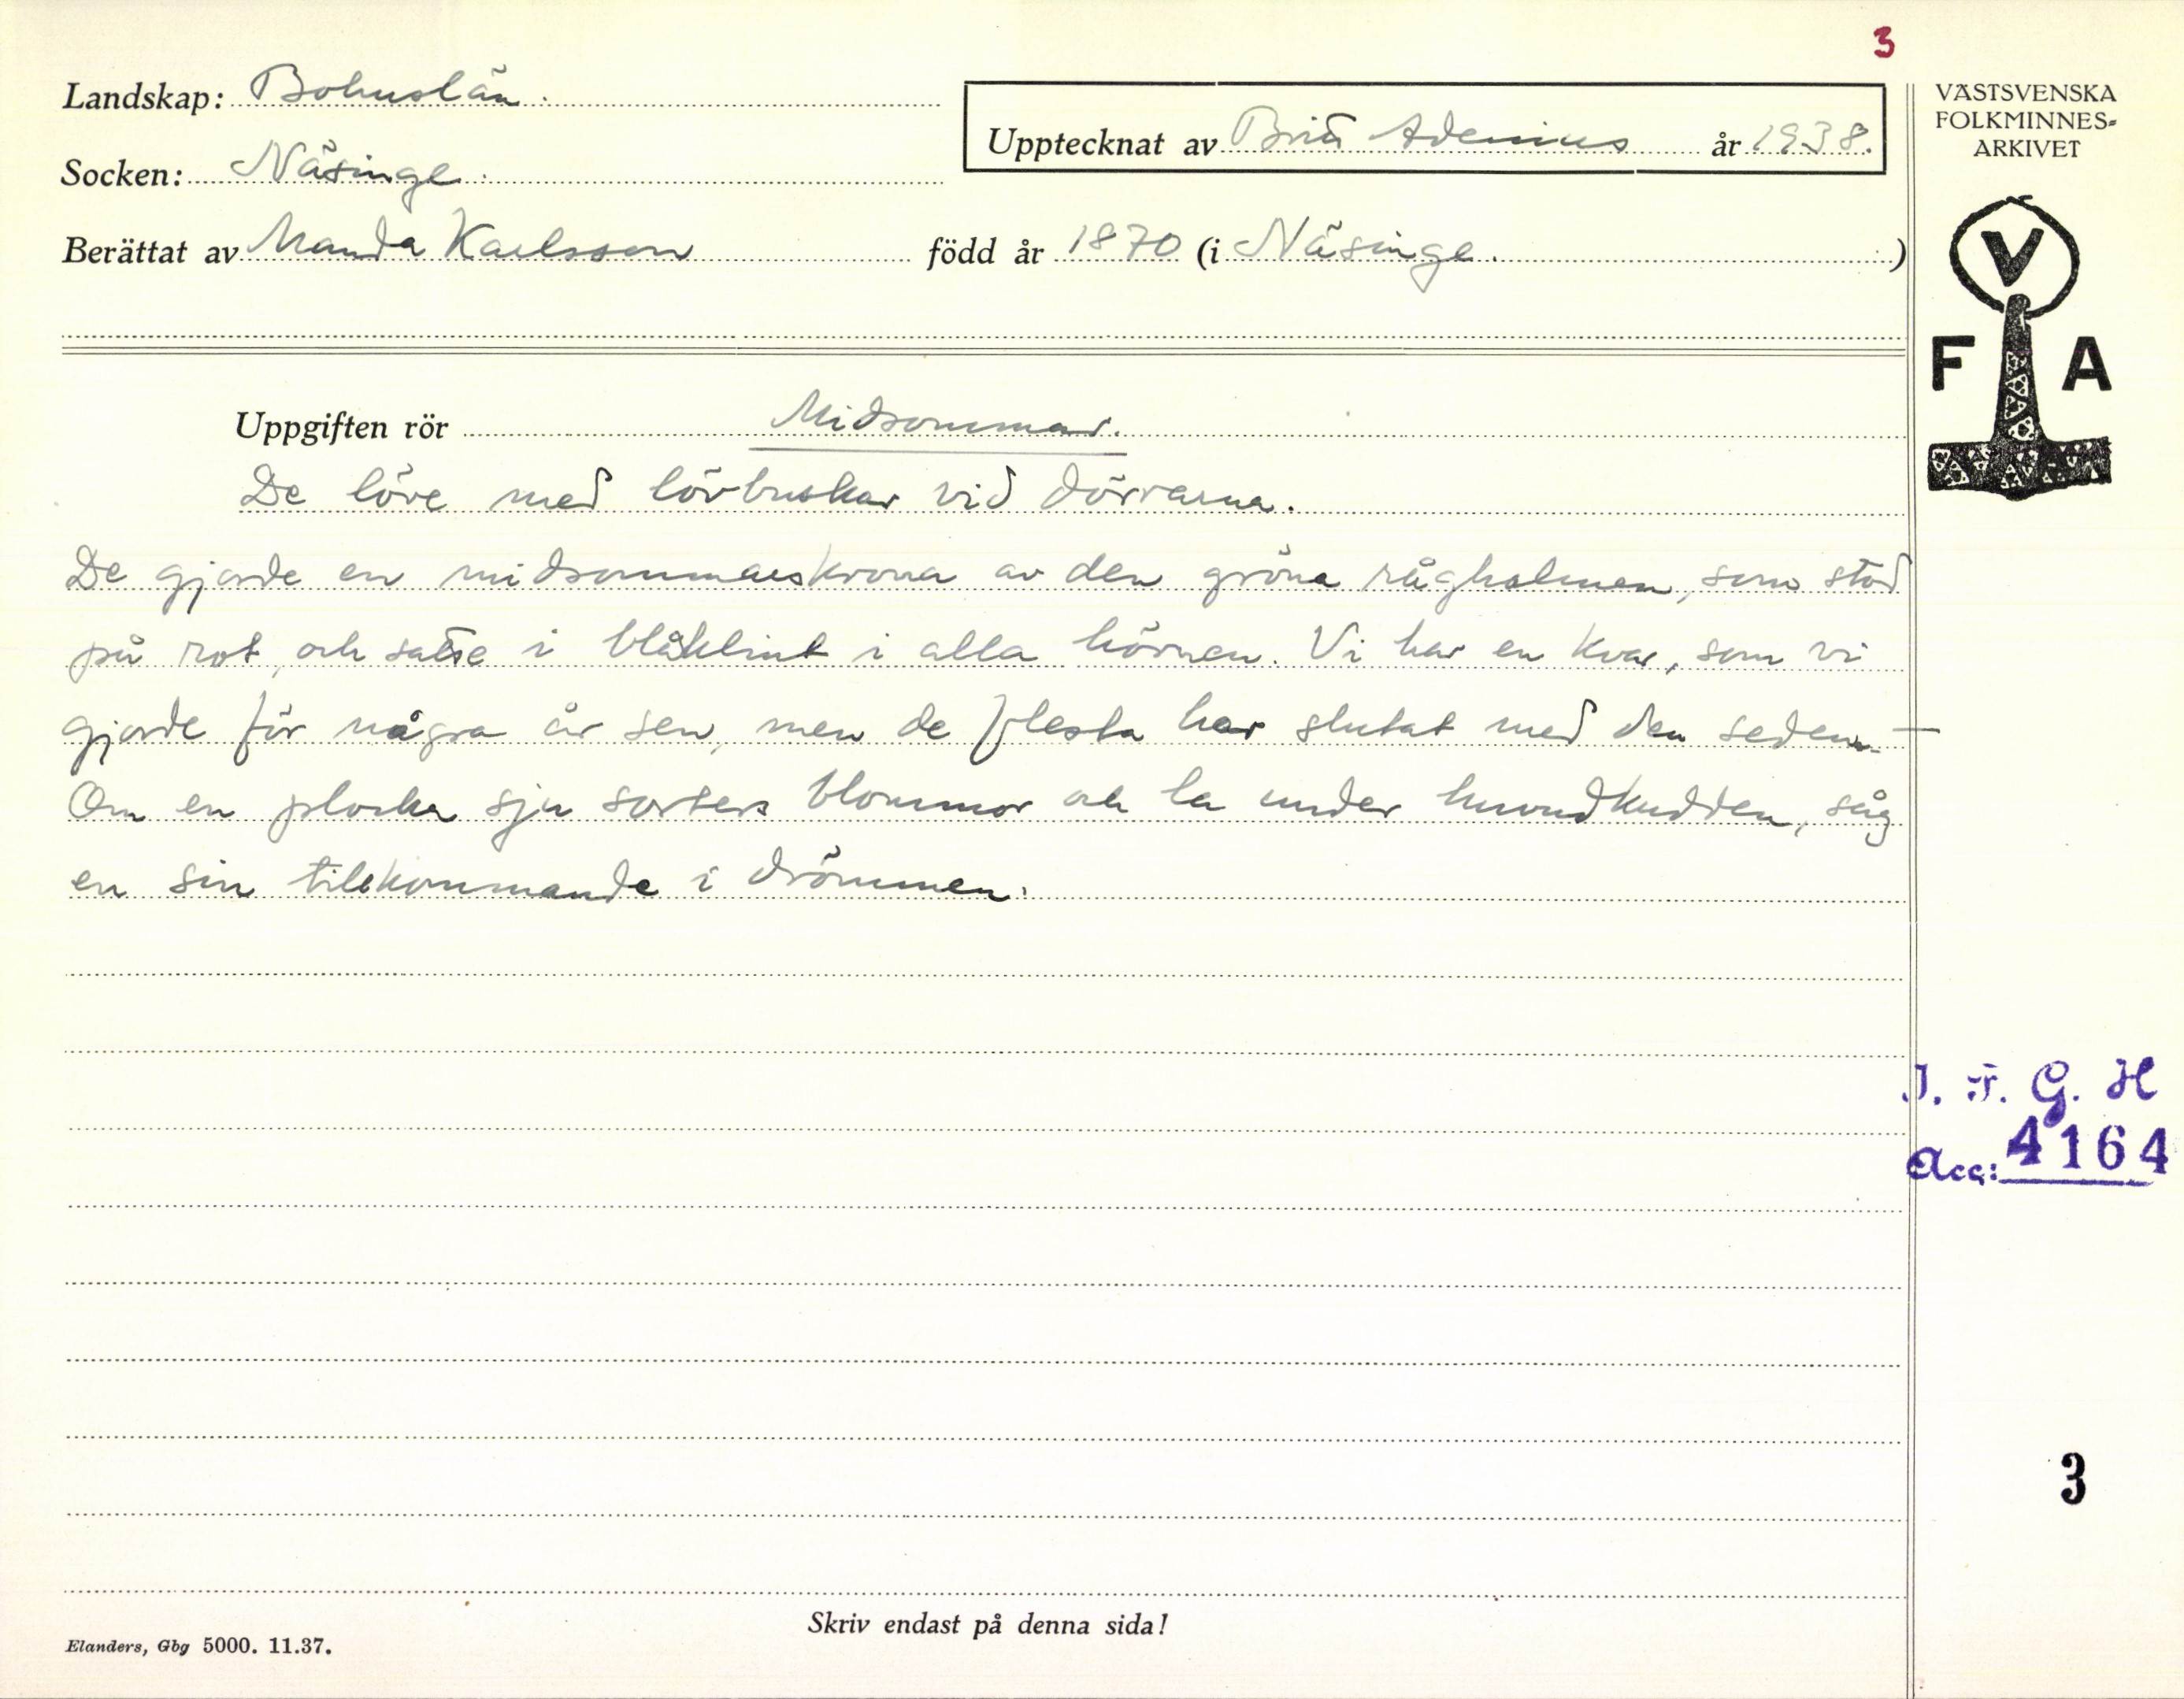 3
Landskap: Bohuslän.
Upptecknat av Britt Adenius år 1938.
Socken: Näsinge.
Berättat av Manda Karlsson född år 1870 (i Näsinge.)
VÄSTSVENSKA
FOLKMINNES-
ARKIVET
V
F A
Uppgiften rör Midsommar.
De löve med lövbuskar vid dörrarna.
De gjorde en midsommarskrona av den gröna råghalmen, som stod
på rot, och satte i blåklint i alla hörnen. Vi har en kvar, som vi
gjorde för några år sen, men de flesta har slutat med den seden. —
Om en plocka sju sorters blommor och la under huvudkudden, såg
en sin tillkommande i drömmen.
I. F. G. H
Acc: 4164
3
Skriv endast på denna sida!
Elanders, Gbg 5000. 11.37.